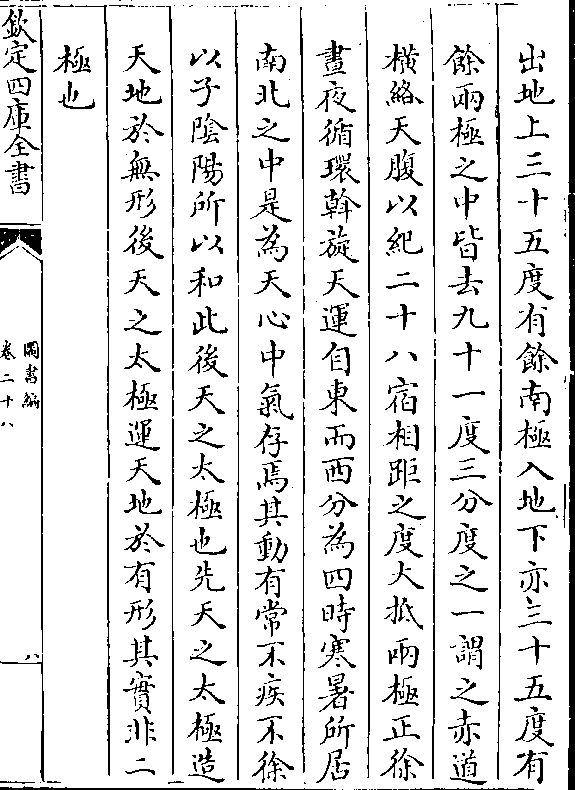 出地上三十五度有餘南極入地下亦三十五度有
餘兩極之中皆去九十一度三分度之一謂之赤道
橫絡天腹以紀二十八宿相距之度大抵兩極正徐
晝夜循環斡旋天運自東而西分為四時寒暑所居
南北之中是為天心中氣存焉其動有常不疾不徐
以子陰陽所以和此後天之太極也先天之太極造
天地於無形後天之太極運天地於有形其實非二
極也
欽定四庫全書
圖書編
卷二十八
八